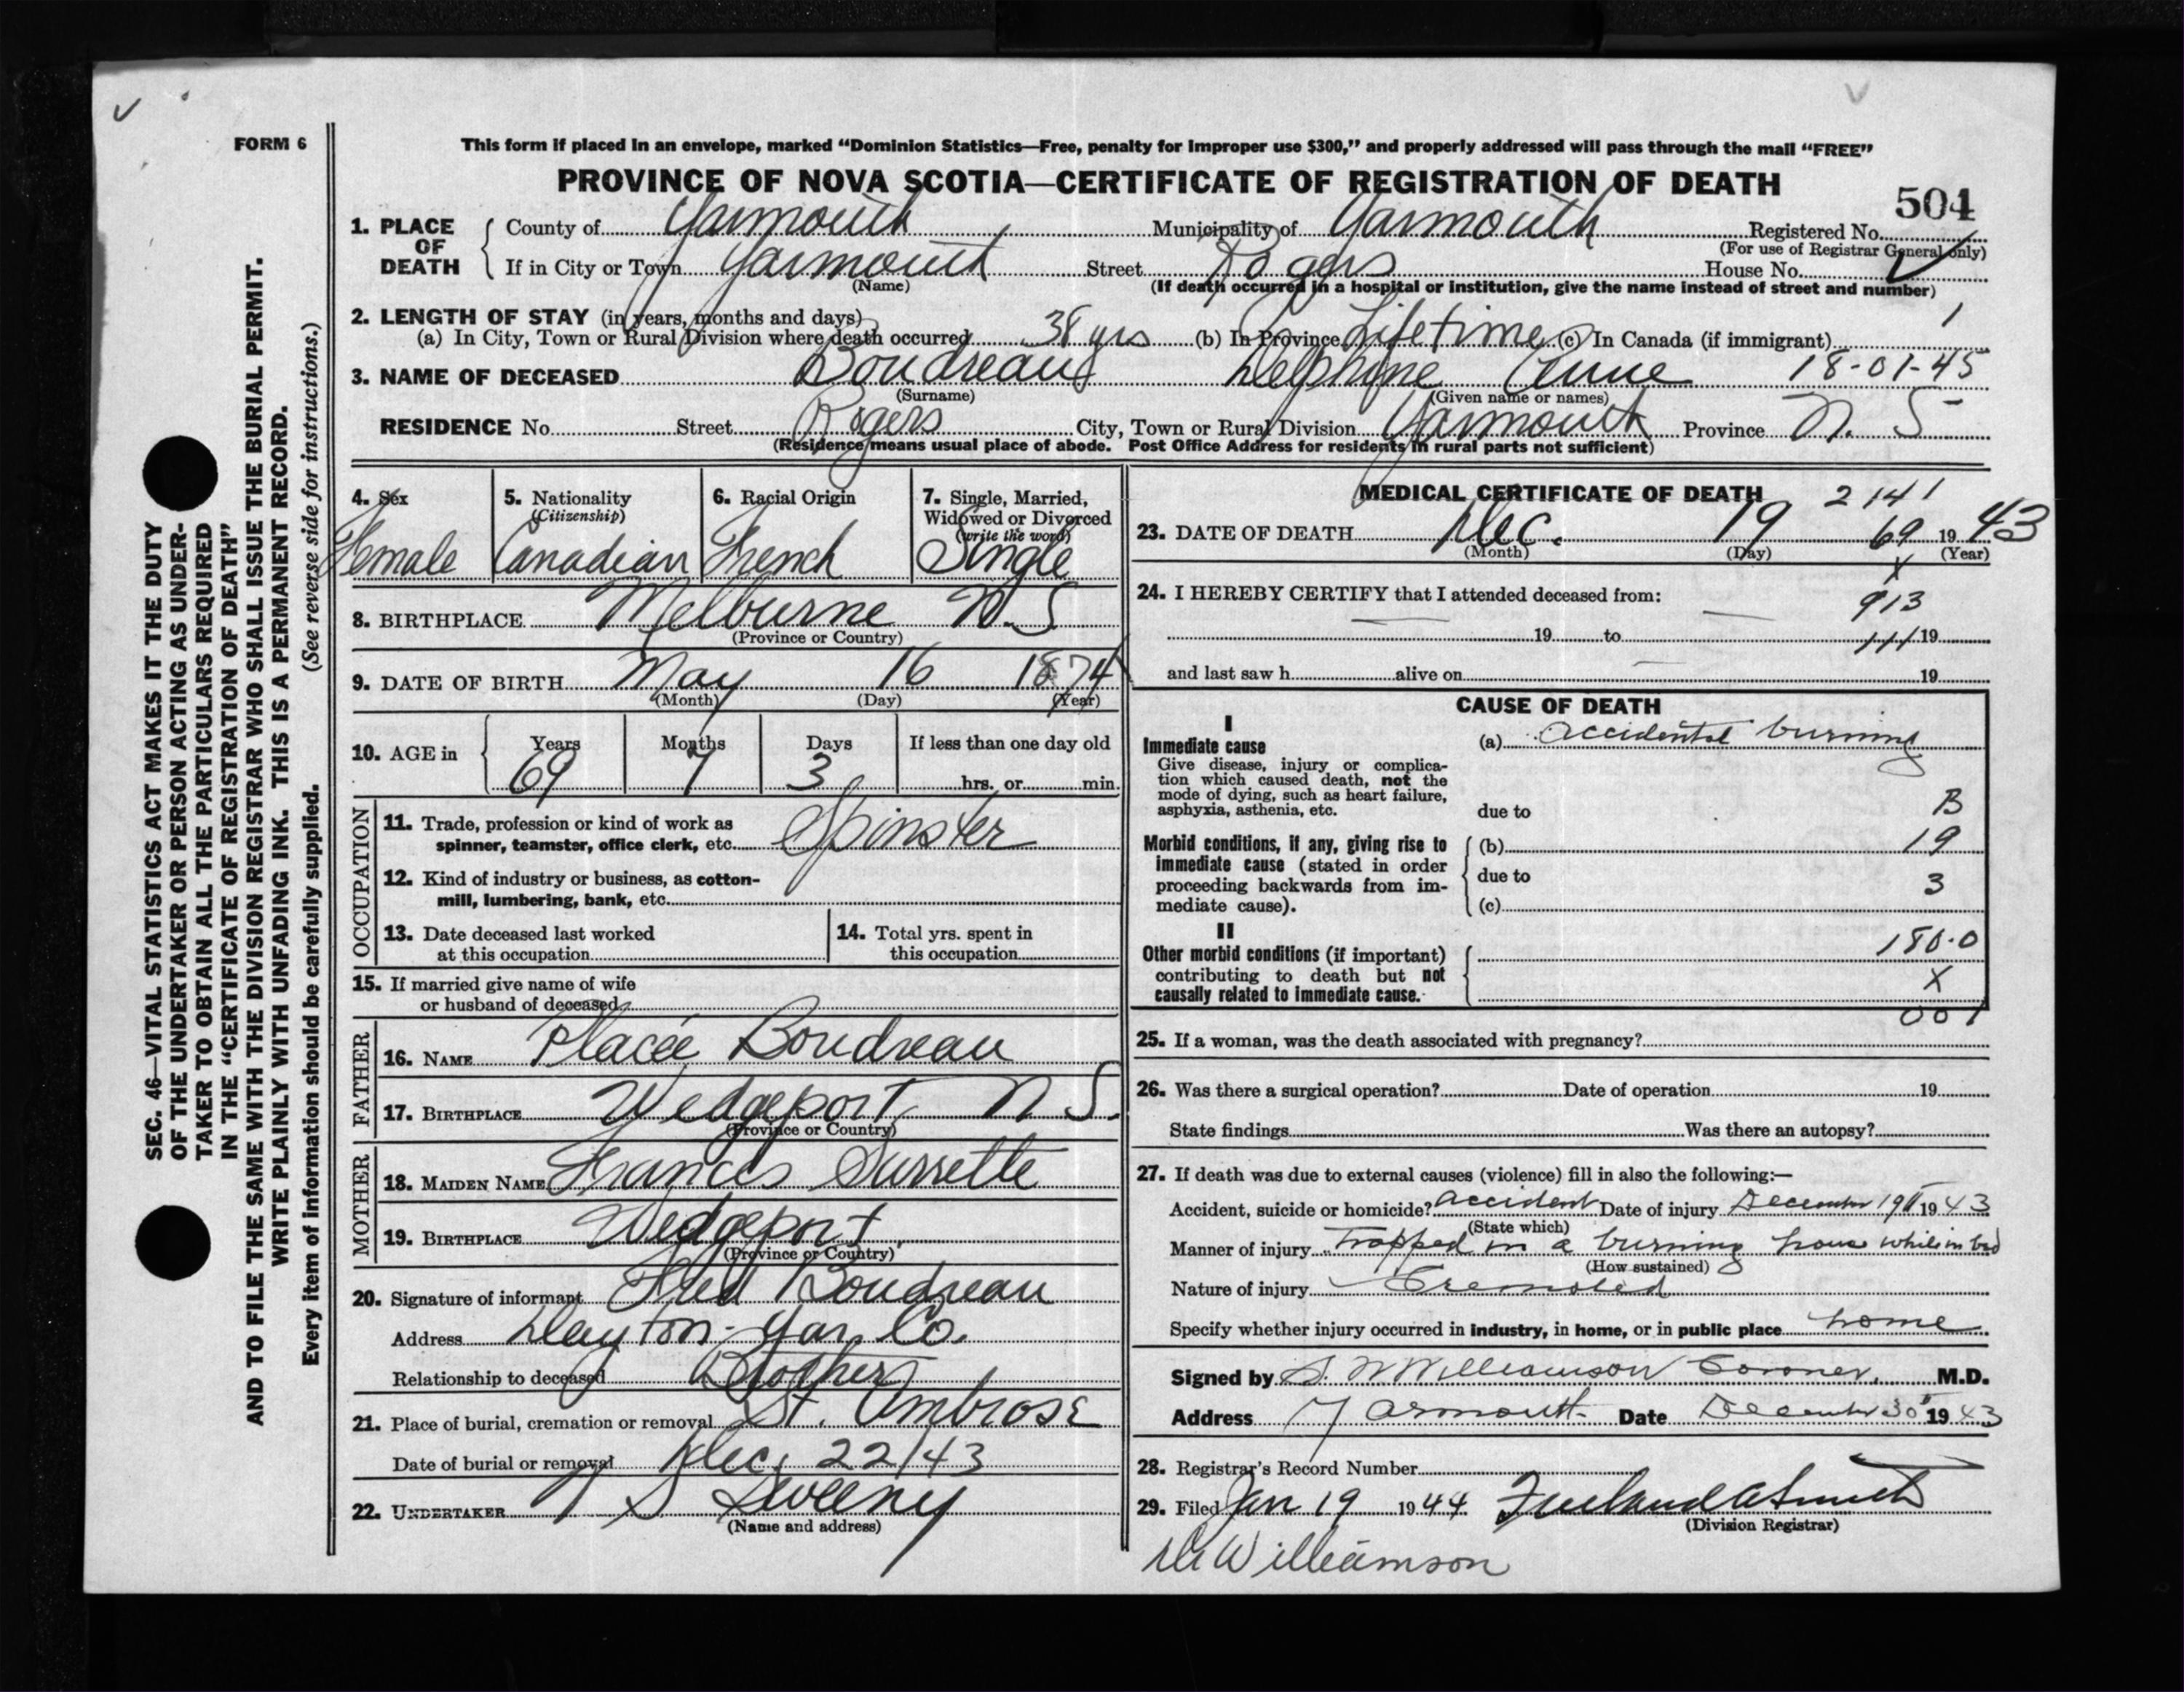 FORM 6
This form if placed in an envelope, marked "Dominion Statistics—Free, penalty for improper use $300," and properly addressed will pass through the mail "FREE"
PROVINCE OF NOVA SCOTIA—CERTIFICATE OF REGISTRATION OF DEATH
504
1. PLACE OF DEATH County of Yarmouth Municipality of Yarmouth Registered No.
(For use of Registrar General only)
If in City or Town Yarmouth Street Rogers House No.
(Name)
(If death occurred in a hospital or institution, give the name instead of street and number)
2. LENGTH OF STAY (in years, months and days)
(a) In City, Town or Rural Division where death occurred 38 yrs (b) In Province Lifetime (c) In Canada (if immigrant) 1
3. NAME OF DECEASED Boudreau Delphine Anne 18-01-45
(Surname) (Given name or names)
RESIDENCE No. Street Rogers City, Town or Rural Division Yarmouth Province N. S
(Residence means usual place of abode. Post Office Address for residents in rural parts not sufficient)
4. Sex
Female
5. Nationality
(Citizenship)
Canadian
6. Racial Origin
French
7. Single, Married,
Widowed or Divorced
(write the word)
Single
8. BIRTHPLACE Melburne N.S
(Province or Country)
9. DATE OF BIRTH May 16 1874
(Month) (Day) (Year)
10. AGE in Years Months Days If less than one day old
69 7 3 hrs. or min.
OCCUPATION
11. Trade, profession or kind of work as
spinner, teamster, office clerk, etc. Spinster
12. Kind of industry or business, as cotton-
mill, lumbering, bank, etc.
13. Date deceased last worked
at this occupation
14. Total yrs. spent in
this occupation
15. If married give name of wife
or husband of deceased
FATHER
16. NAME Placée Boudreau
17. BIRTHPLACE Wedgeport N S.
(Province or Country)
MOTHER
18. MAIDEN NAME Frances Surrette
19. BIRTHPLACE Wedgeport
(Province or Country)
20. Signature of informant Fred Boudreau
Address Dayton - Yar. Co.
Relationship to deceased Brother
21. Place of burial, cremation or removal St. Ambrose
Date of burial or removal Dec. 22/43
22. UNDERTAKER V S Sweeny
(Name and address)
MEDICAL CERTIFICATE OF DEATH 2141
23. DATE OF DEATH Dec. 19 69 1943
(Month) (Day) (Year)
X
24. I HEREBY CERTIFY that I attended deceased from: 913
19 to 111 19
and last saw h alive on 19
CAUSE OF DEATH
I
Immediate cause
Give disease, injury or complica-
tion which caused death, not the
mode of dying, such as heart failure,
asphyxia, asthenia, etc.
(a) accidental burning
due to B
Morbid conditions, if any, giving rise to
immediate cause (stated in order
proceeding backwards from im-
mediate cause).
(b) 19
due to 3
(c)
II
Other morbid conditions (if important)
contributing to death but not
causally related to immediate cause.
180.0
X
001
25. If a woman, was the death associated with pregnancy?
26. Was there a surgical operation? Date of operation 19
State findings Was there an autopsy?
27. If death was due to external causes (violence) fill in also the following:—
Accident, suicide or homicide? accident Date of injury December 19 1943
(State which)
Manner of injury Trapped in a burning house while in bed
(How sustained)
Nature of injury Cremated
Specify whether injury occurred in industry, in home, or in public place home
Signed by S. W Williamson Coroner. M.D.
Address Yarmouth Date December 30 1943
28. Registrar's Record Number
29. Filed Jan 19 1944
(Division Registrar)
Dr Williamson
SEC. 46—VITAL STATISTICS ACT MAKES IT THE DUTY
OF THE UNDERTAKER OR PERSON ACTING AS UNDER-
TAKER TO OBTAIN ALL THE PARTICULARS REQUIRED
IN THE "CERTIFICATE OF REGISTRATION OF DEATH"
AND TO FILE THE SAME WITH THE DIVISION REGISTRAR WHO SHALL ISSUE THE BURIAL PERMIT.
WRITE PLAINLY WITH UNFADING INK. THIS IS A PERMANENT RECORD.
Every item of information should be carefully supplied. (See reverse side for instructions.)